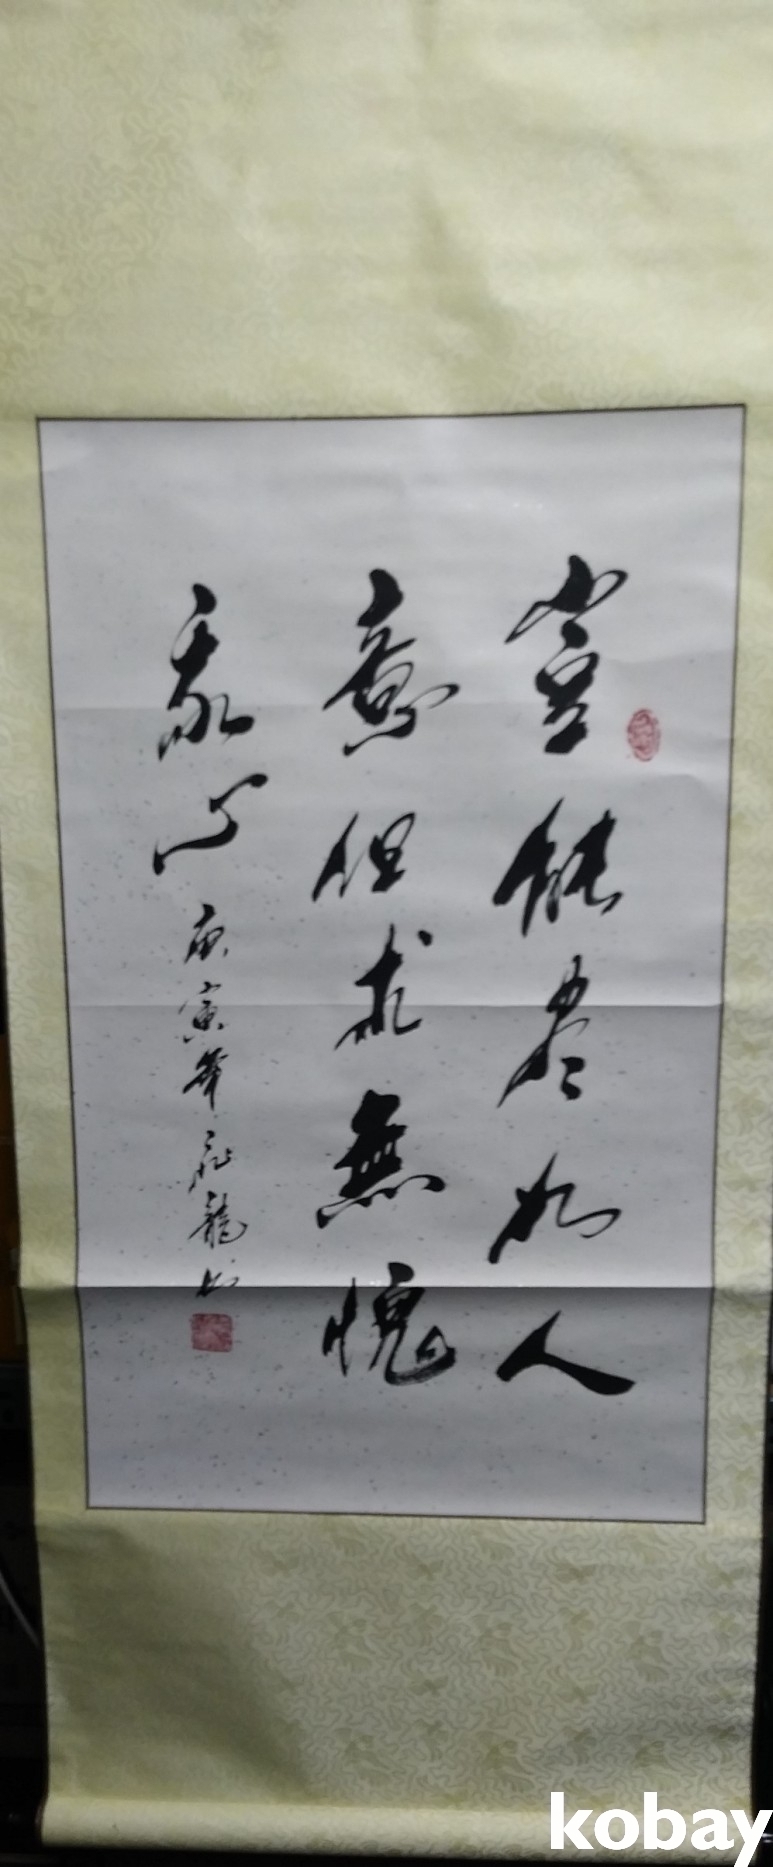 豈能盡如人
意但求無愧
我心
庚寅年 龍书
kobay